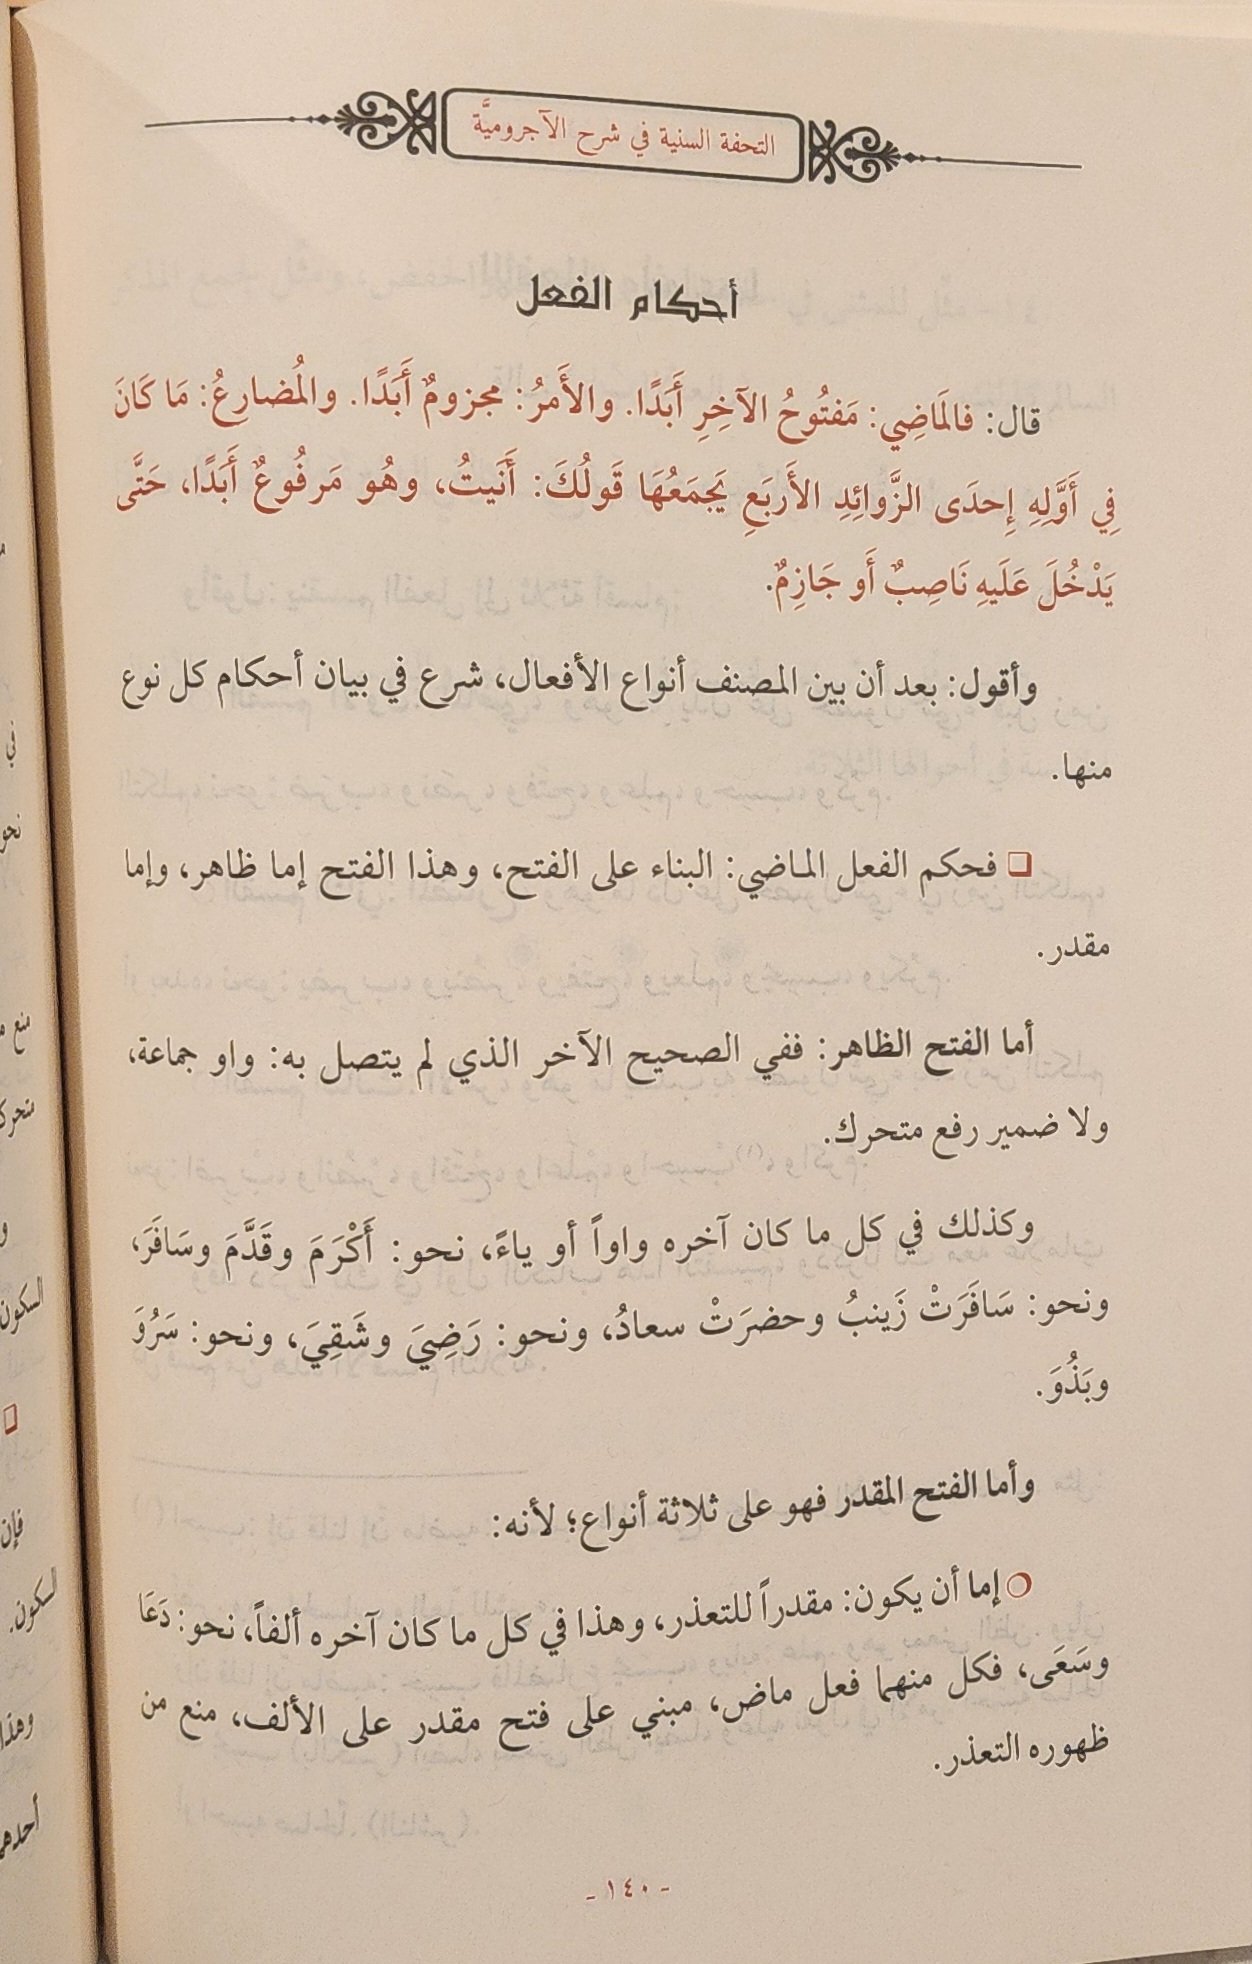 التحفة السنية في شرح الآجروميَّة
أحكام الفعل
قال: فالمَاضِي: مَفتُوحُ الآخِرِ أَبَدًا. والأَمرُ: مجزومٌ أَبَدًا. والمُضارِعُ: مَا كَانَ
فِي أَوَّلِهِ إِحدَى الزَّوائِدِ الأَربَعِ يَجمَعُهَا قَولُكَ: أَنَيتُ، وهُو مَرفُوعٌ أَبَدًا، حَتَّى
يَدْخُلَ عَلَيهِ نَاصِبٌ أَو جَازِمٌ.
وأقول: بعد أن بين المصنف أنواع الأفعال، شرع في بيان أحكام كل نوع
منها.
❏ فحكم الفعل الماضي: البناء على الفتح، وهذا الفتح إما ظاهر، وإما
مقدر.
أما الفتح الظاهر: ففي الصحيح الآخر الذي لم يتصل به: واو جماعة،
ولا ضمير رفع متحرك.
وكذلك في كل ما كان آخره واواً أو ياءً، نحو: أَكْرَمَ وقَدَّمَ وسَافَرَ،
ونحو: سَافَرَتْ زَينبُ وحضرَتْ سعادُ، ونحو: رَضِيَ وشَقِيَ، ونحو: سَرُوَ
وبَذُوَ.
وأما الفتح المقدر فهو على ثلاثة أنواع؛ لأنه:
❍ إما أن يكون: مقدراً للتعذر، وهذا في كل ما كان آخره ألفاً، نحو: دَعَا
وسَعَى، فكل منهما فعل ماض، مبني على فتح مقدر على الألف، منع من
ظهوره التعذر.
- ١٤٠ -